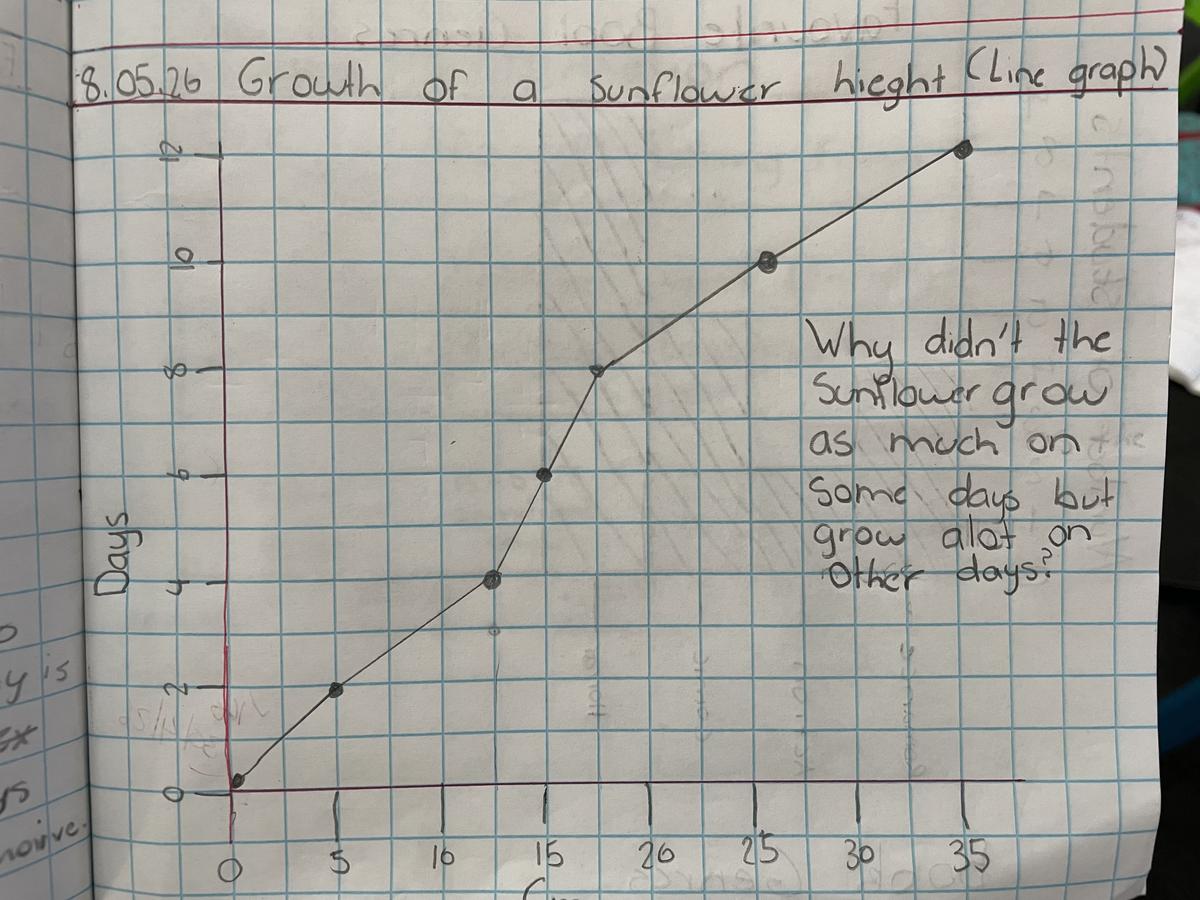 8.05.26 Growth of a Sunflower hieght (Line graph)
12
10
8
6
4
2
0
Days
0 5 10 15 20 25 30 35
Why didn't the
Sunflower grow
as much on
Some days but
grow alot on
Other days?
y is